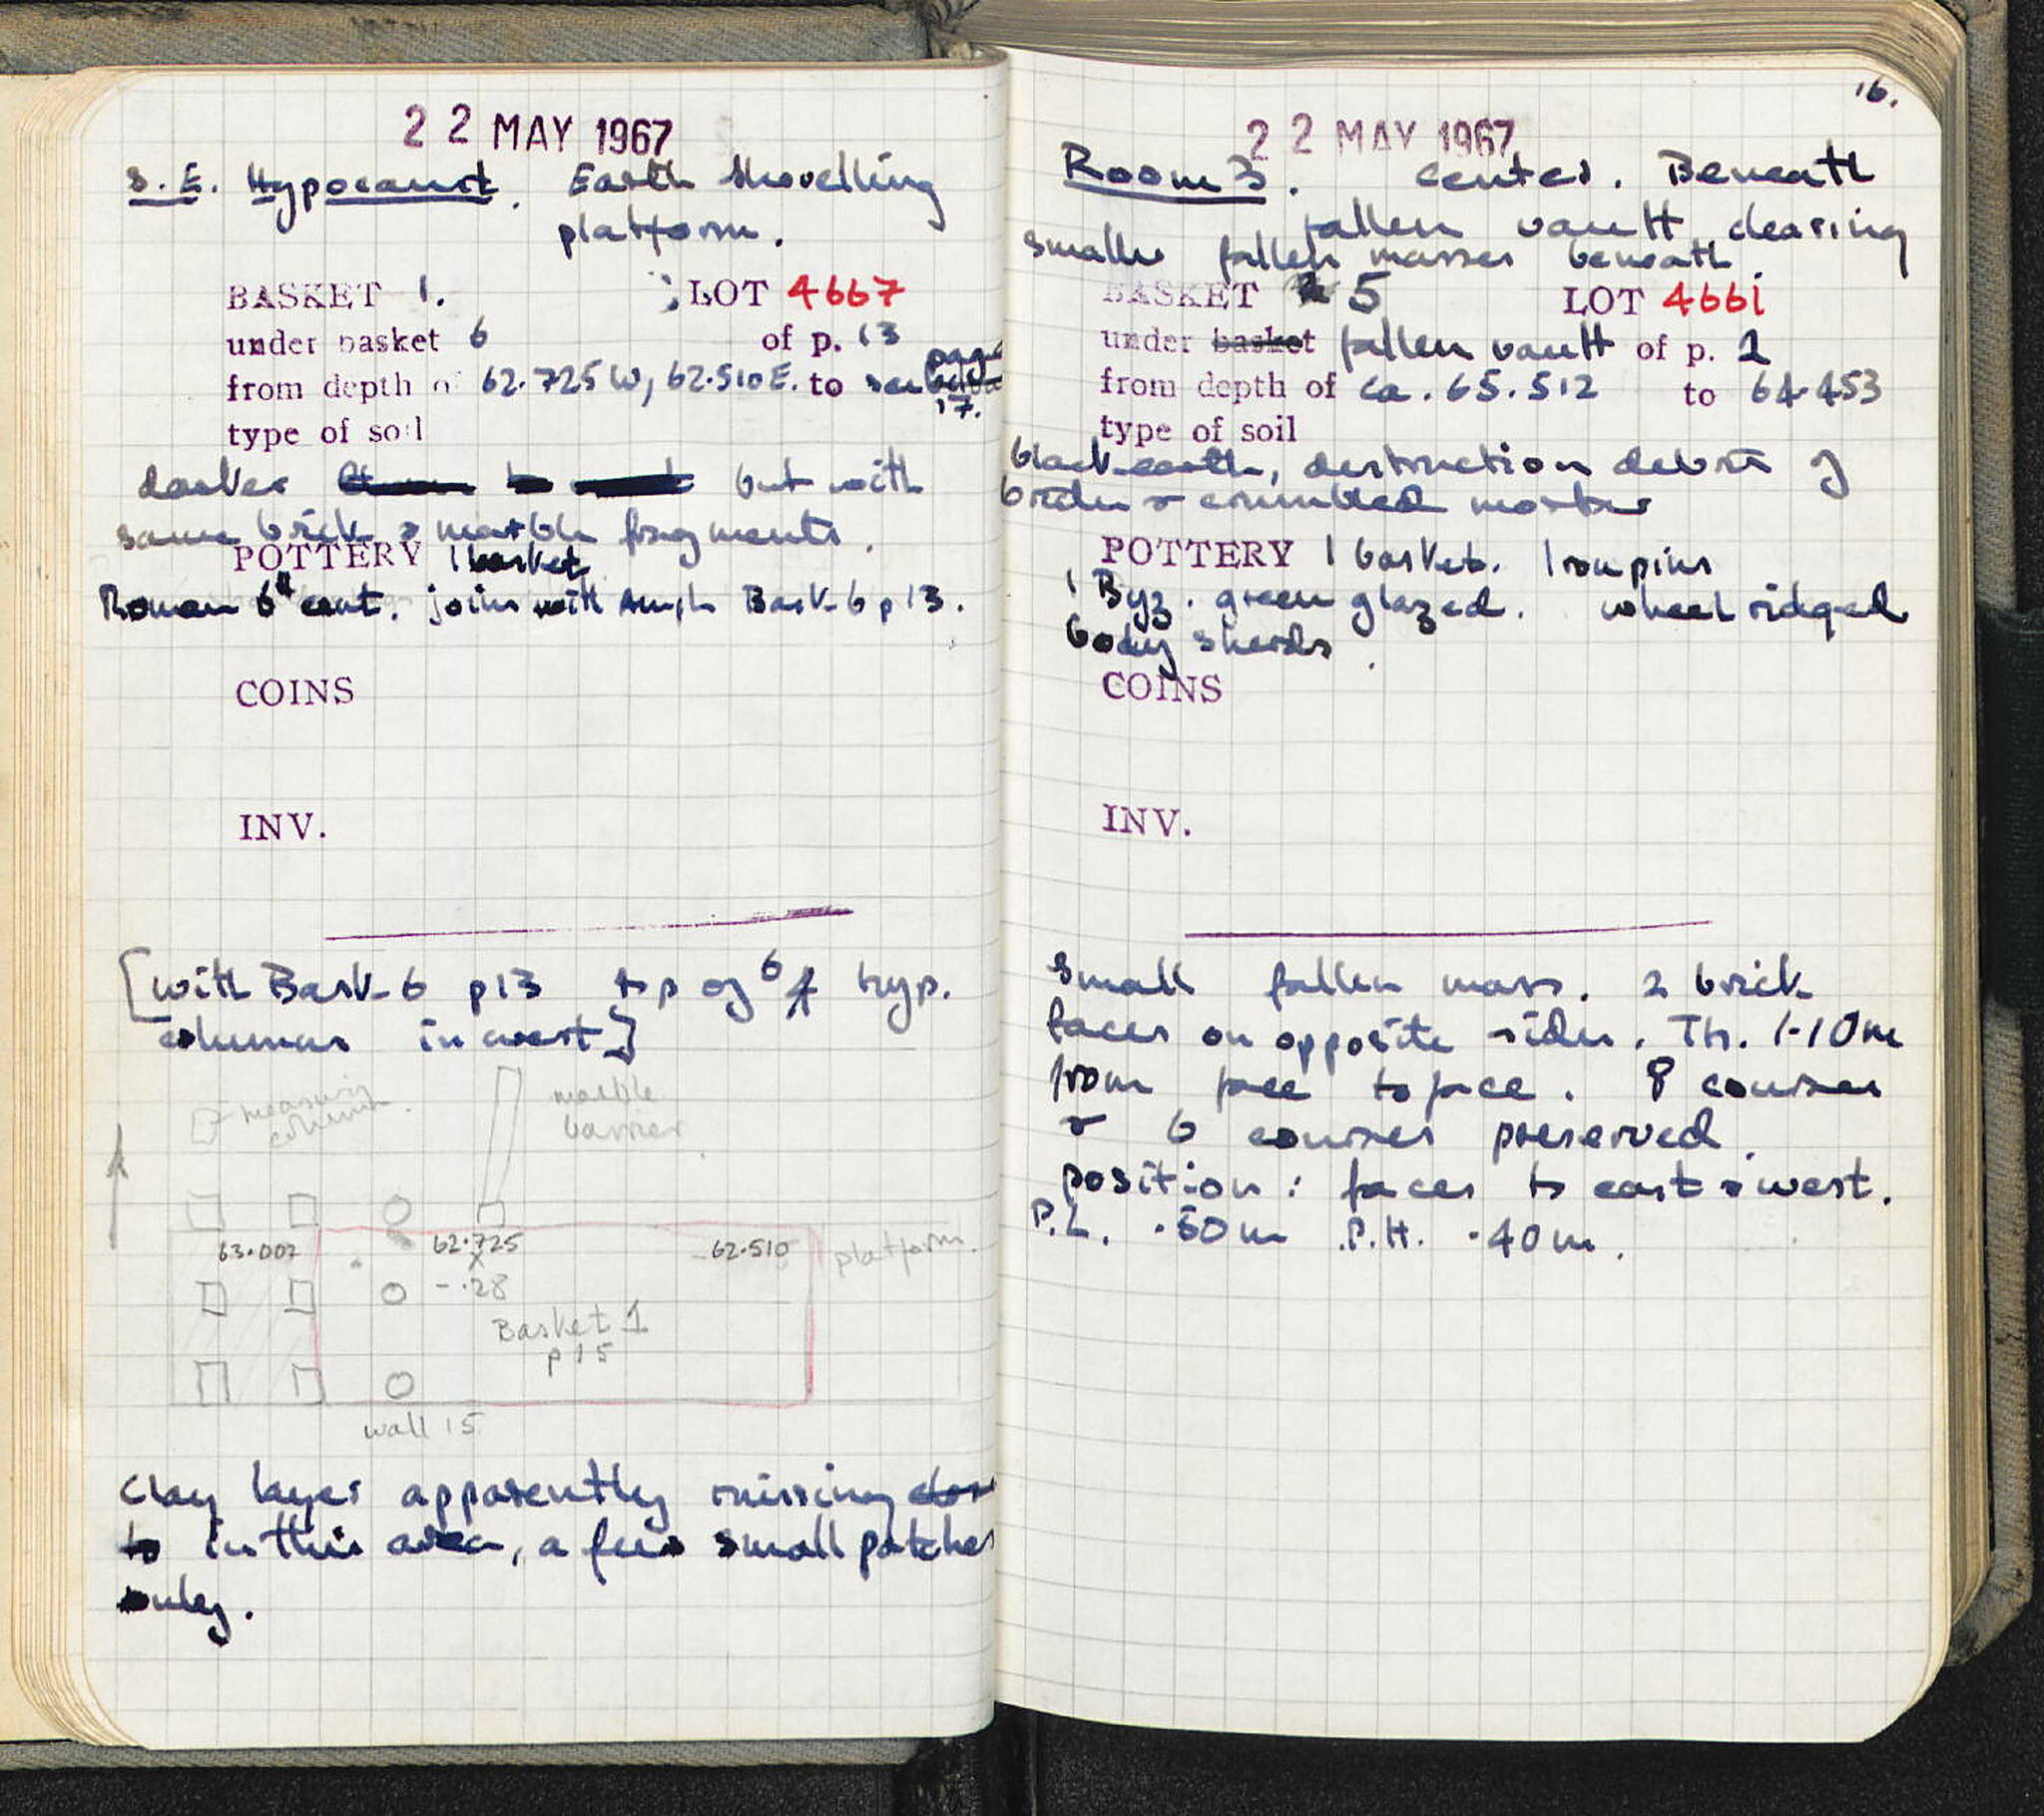 22 MAY 1967
S.E. Hypocaust. Earth shovelling
platform.
BASKET 1. LOT 4667
under basket 6 of p. 13
from depth of 62.725 W, 62.510 E. to see page
17.
type of soil
darker but with
same brick & marble fragments.
POTTERY 1 basket
Roman 6th cent. joins with Amph Bask 6 p 13.
COINS
INV.
[with Bask 6 p 13 top of 6 hyp.
columns in west]
measuring
column.
marble
barrier
63.002 62.725 62.510 platform.
x
-.28
Basket 1
p 15
wall 15
Clay layer apparently missing
in this area, a few small patches
only.
16.
22 MAY 1967
Room 3. Center. Beneath
fallen vault clearing
smaller fallen masses beneath.
BASKET 5 LOT 4661
under basket fallen vault of p. 1
from depth of ca. 65.512 to 64.453
type of soil
black earth, destruction debris of
bricks & crumbled mortar
POTTERY 1 basket. Iron pins
1 Byz. green glazed. wheel ridged
body sherds.
COINS
INV.
Small fallen mass. 2 brick
faces on opposite sides. Th. 1.10m
from face to face. 8 courses
& 6 courses preserved.
position: faces to east & west.
P.L. .50m P.H. .40m.